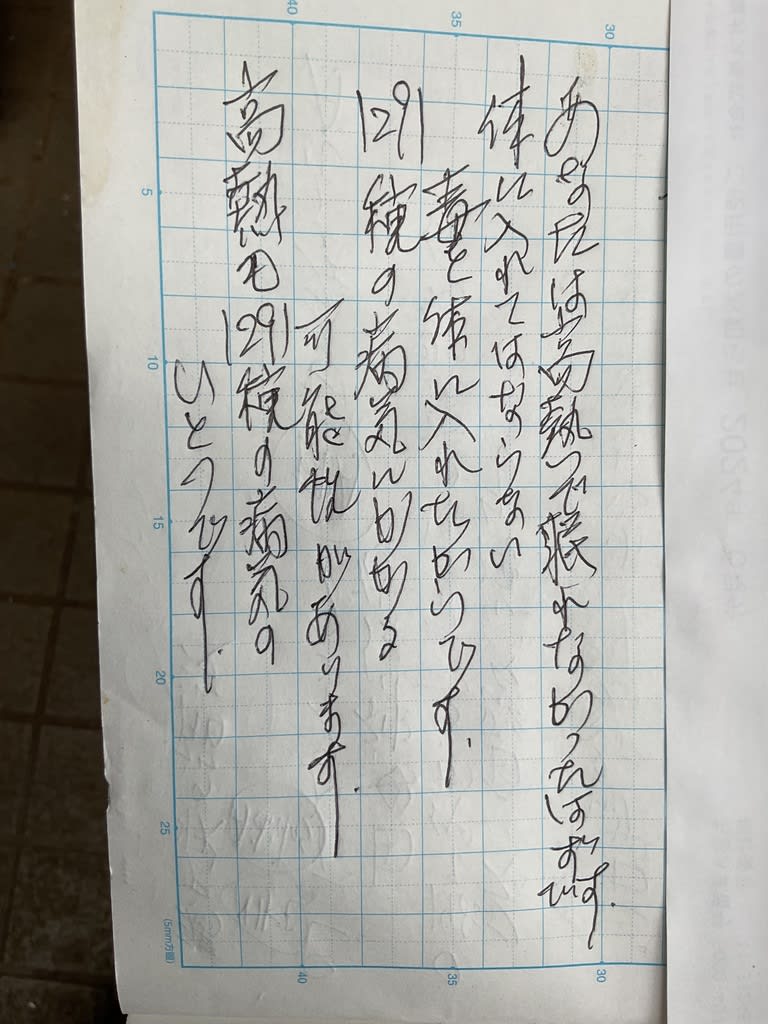 あなたは高熱で眠れなかったはずです.
体に入れてはならない
毒を体に入れたからです.
1291
種の病気にかかる
可能性があります.
高熱も1291種の病気の
ひとつです.
40
35
30
5
10
15
20
25
40
35
30
(5mm方眼)